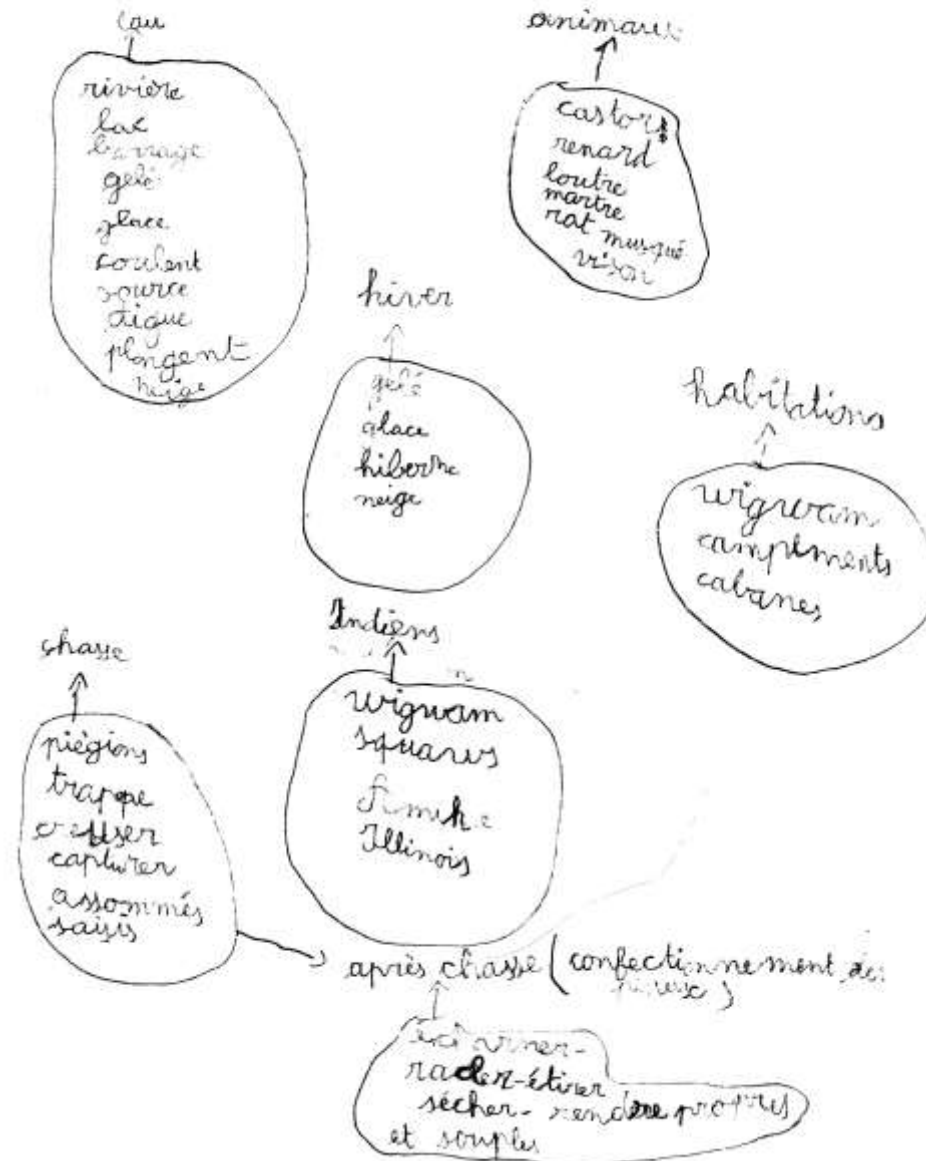 eau
rivière
lac
barrage
gelé
glace
coulent
source
digue
plongent
neige
animaux
castors
renard
loutre
martre
rat musqué
vison
hiver
gelé
glace
hiberne
neige
habitations
wigwam
campements
cabanes
chasse
piégions
trappe
creuser
capturer
assommés
saisis
Indiens
wigwam
squaws
Illinois
après chasse (confectionnement des
peaux)
écharner-
racler-étirer
sécher-rendre propres
et souples